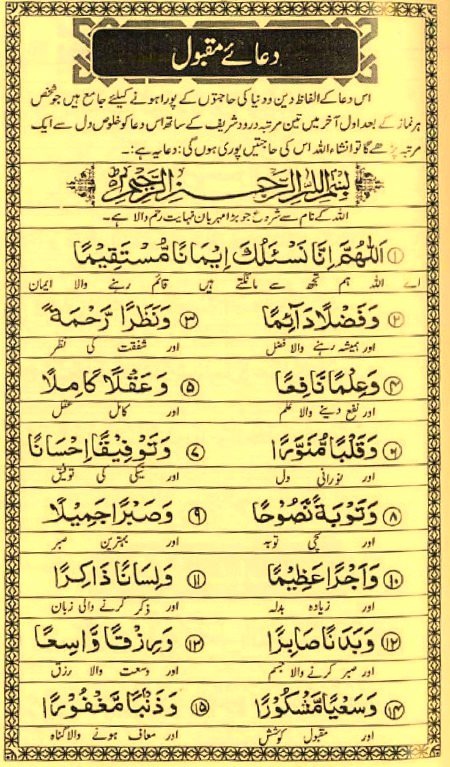 دعائے مقبول
اس دعا کے الفاظ دین و دنیا کی حاجتوں کے پورا ہونے کیلئے جامع ہیں جو شخص
ہر نماز کے بعد اول آخر میں تین مرتبہ درود شریف کے ساتھ اس دعا کو خلوص دل سے ایک
مرتبہ پڑھے گا تو انشاء اللہ اس کی حاجتیں پوری ہوں گی: دعا یہ ہے:۔
بِسْمِ اللهِ الرَّحْمٰنِ الرَّحِيْمِ
اللہ کے نام سے شروع جو بڑا مہربان نہایت رحم والا ہے۔
① اَللّٰهُمَّ اِنَّا نَسْئَلُكَ اِيْمَانًا مُّسْتَقِيْمًا
اے اللہ ہم تجھ سے مانگتے ہیں قائم رہنے والا ایمان
② وَفَضْلًا دَآئِمًا ③ وَنَظَرًا رَّحْمَةً
اور ہمیشہ رہنے والا فضل اور شفقت کی نظر
④ وَعِلْمًا نَافِعًا ⑤ وَعَقْلًا كَامِلًا
اور نفع دینے والا علم اور کامل عقل
⑥ وَقَلْبًا مُّنَوَّرًا ⑦ وَتَوْفِيْقًا اِحْسَانًا
اور نورانی دل اور نیکی کی توفیق
⑧ وَتَوْبَةً نَّصُوْحًا ⑨ وَصَبْرًا جَمِيْلًا
اور سچی توبہ اور بہترین صبر
⑩ وَاَجْرًا عَظِيْمًا ⑪ وَلِسَانًا ذَاكِرًا
اور زیادہ بدلہ اور ذکر کرنے والی زبان
⑫ وَبَدَنًا صَابِرًا ⑬ وَرِزْقًا وَّاسِعًا
اور صبر کرنے والا جسم اور وسعت والا رزق
⑭ وَسَعْيًا مَّشْكُوْرًا ⑮ وَذَنْبًا مَّغْفُوْرًا
اور مقبول کوشش اور معاف ہونے والا گناہ